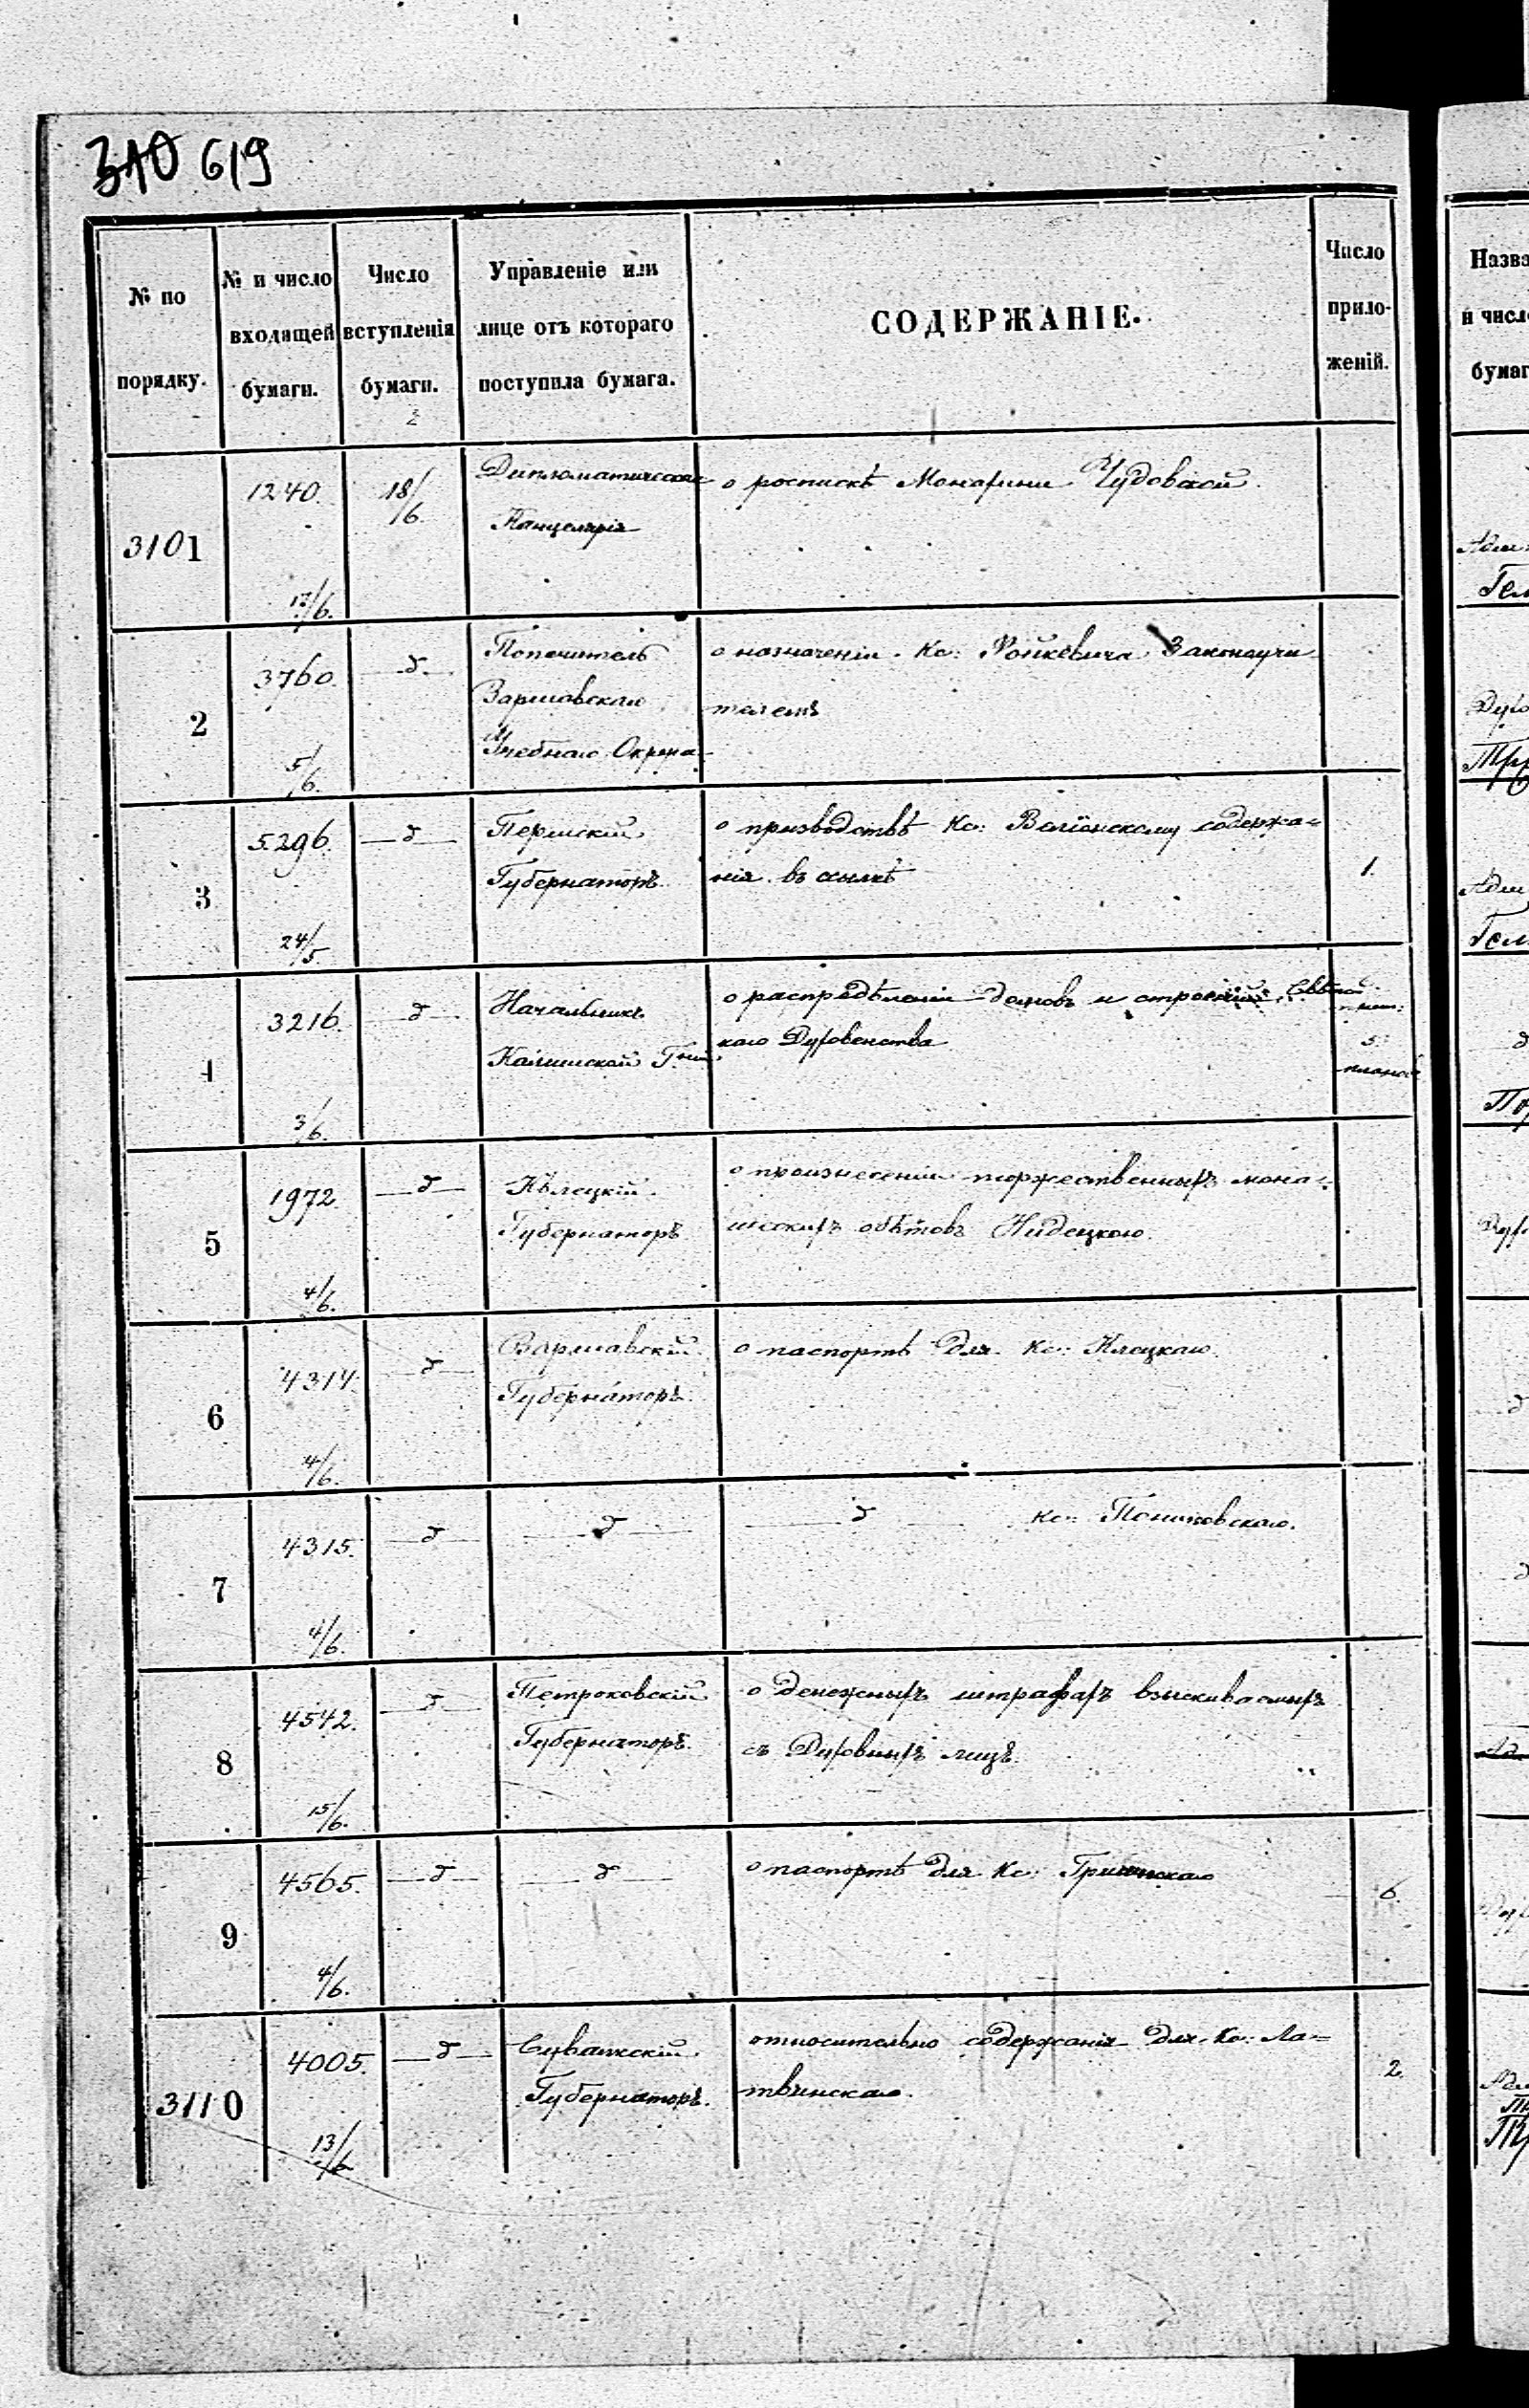 310 619
№ по порядку.
№ и число входящей бумаги.
Число вступленія бумаги.
Управленіе или лице отъ котораго поступила бумага.
СОДЕРЖАНІЕ.
Число прило-женій.
3101
1240.
17/6.
18/6.
Дипломатическая
Канцелярія
о роспискѣ Монахини Чудовской.
2
3760.
5/6.
д
Попечитель
Варшавскаго
Учебнаго Округа
о назначеніи Кс: Войкевича Законоучи
телемъ
3
5296.
24/5.
д
Пермскій
Губернаторъ.
о производствѣ Кс: содержа=
нія въ ссылкѣ
1.
4
3216.
3/6.
д
Начальникъ
Калишской Губ.
о распредѣленіи домовъ и строеній
каго Духовенства
5
планов
5
1972.
4/6.
д
Кѣлецкій
Губернаторъ
о произнесеніи торжественныхъ мона=
шескихъ обѣтовъ Нидецкою.
6
4314.
4/6.
д
Варшавскій
Губернаторъ.
о паспортѣ для Кс: Клецкаго.
7
4315.
4/6.
д
д
д Кс: Понятовскаго.
8
4542.
15/6.
д
Петроковскій
Губернаторъ.
о денежныхъ штрафахъ взыскиваемыхъ
съ Духовныхъ лицъ.
9
4565.
4/6.
д
д
о паспортѣ для Кс:
6.
3110
4005.
13/6
д
Сувалкскій
Губернаторъ.
относительно содержанія для Кс: Ла=
твинскаго.
2.
Назва
и число
бумаг